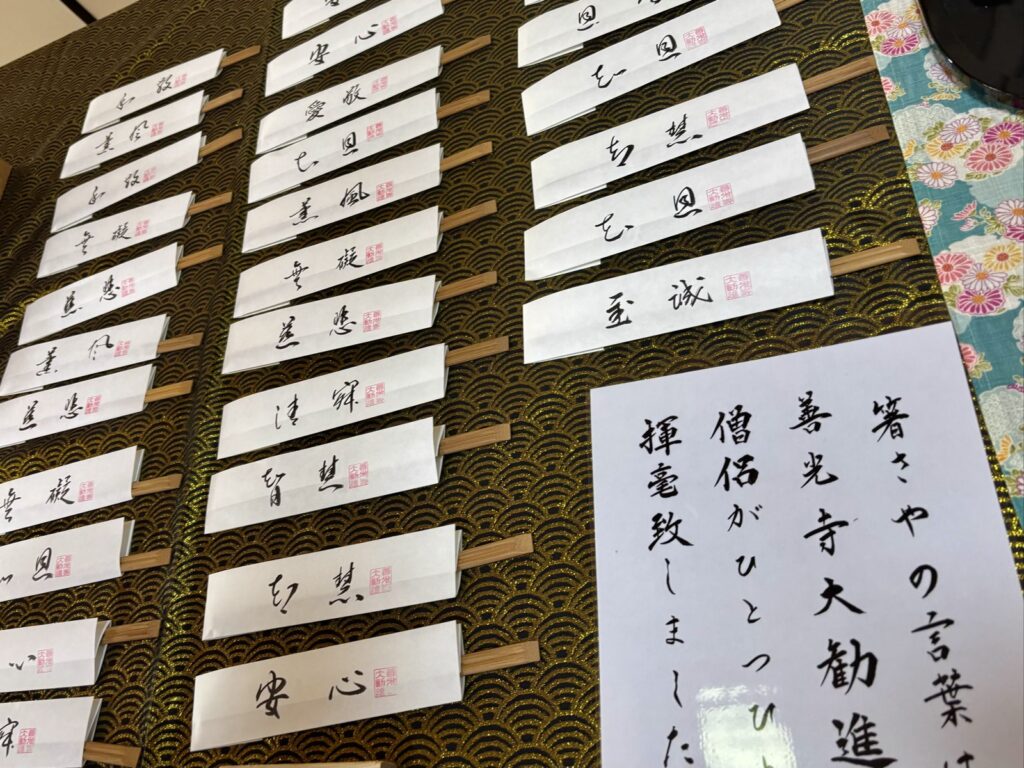 和敬
薫風
和敬
無礙
慈悲
薫風
慈悲
無礙
恩
心
寂
安心
愛敬
知恩
薫風
無礙
慈悲
清寂
智慧
智慧
安心
恩
知恩
智慧
知恩
至誠
箸さやの言葉は
善光寺大勧進
僧侶がひとつひ
揮毫致しました